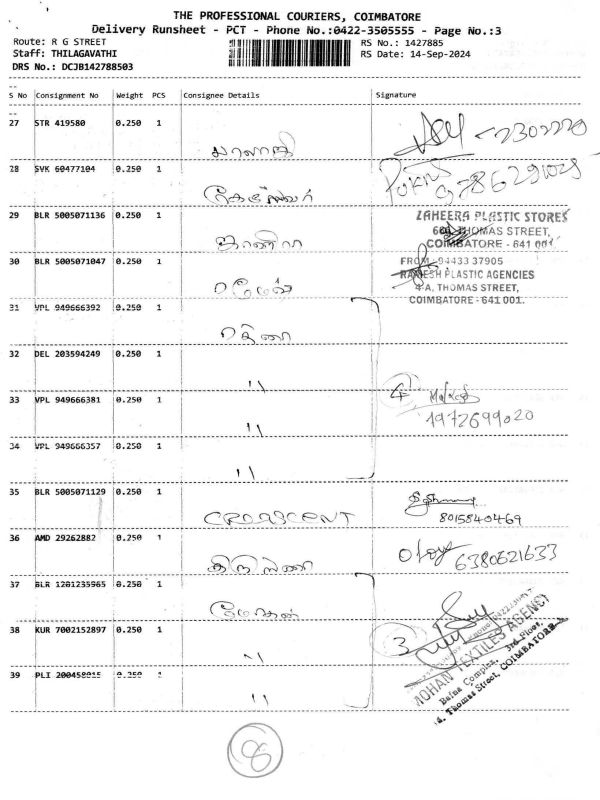 THE PROFESSIONAL COURIERS, COIMBATORE
Delivery Runsheet - PCT - Phone No.:0422-3505555 - Page No.:3
Route: R G STREET RS No.: 1427885
Staff: THILAGAVATHI RS Date: 14-Sep-2024
DRS No.: DCJB142788503
S No Consignment No Weight PCS Consignee Details Signature
27 STR 419580 0.250 1
28 SVK 60477104 0.250 1
29 BLR 5005071136 0.250 1
ZAHEERA PLASTIC STORES
THOMAS STREET,
COIMBATORE - 641 001
30 BLR 5005071047 0.250 1 ரமேஷ்
FROM - 94433 37905
RAMESH PLASTIC AGENCIES
THOMAS STREET,
COIMBATORE - 641 001.
31 VPL 949666392 0.250 1 ரத்னா
32 DEL 203594249 0.250 1 "
33 VPL 949666381 0.250 1 " 4
1972699020
34 VPL 949666357 0.250 1 "
35 BLR 5005071129 0.250 1
8015840469
36 AMD 29262882 0.250 1 6380621633
37 BLR 1201235965 0.250 1 மோகன்
38 KUR 7002152897 0.250 1 " 3
39 PLI 200458015 0.250 1 "
MOHAN TEXTILES AGENCY
Bafna Complex, 3rd Floor,
Thomas Street, COIMBATORE
8